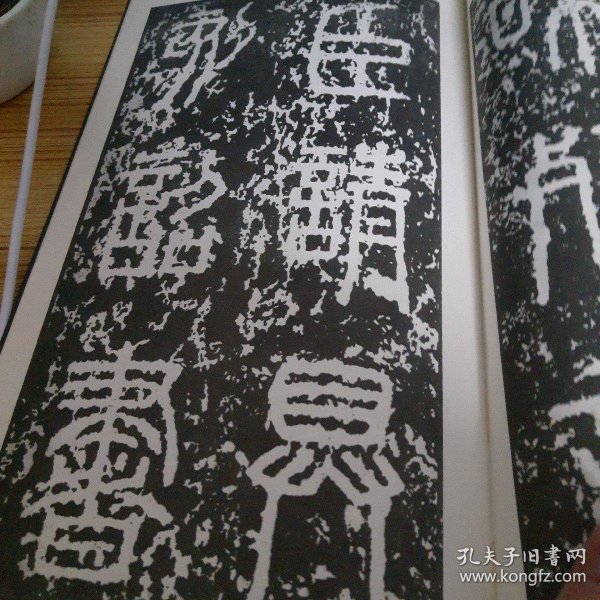 臣請具
刻詔書
孔夫子旧书网
www.kongfz.com